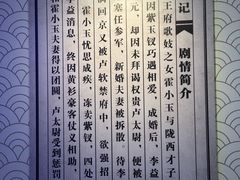 记
剧情简介
王府歌妓之女霍小玉与陇西才子
因紫玉钗巧遇相爱，成婚后，李益
元，却因未拜谒权贵卢太尉，便被
塞任参军，新婚夫妻被拆散。待李
满回京，又被卢软禁府中，欲强招
霍小玉忧思成疾，冻卖紫钗，四处
益消息，终因黄衫豪客仗义相助，
霍小玉夫妻得以团圆，卢太尉受到惩罚